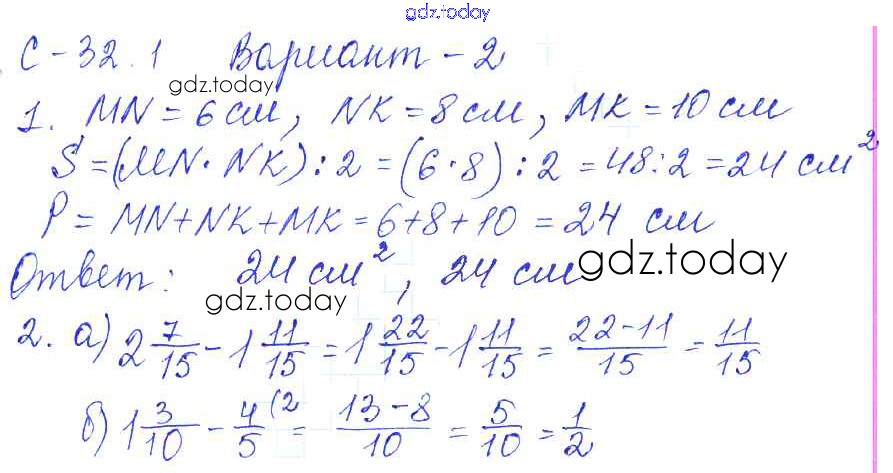 gdz.today
С-32.1 Вариант-2
gdz.today
1. MN = 6 см, NK = 8 см, MK = 10 см
S = (MN · NK) : 2 = (6 · 8) : 2 = 48 : 2 = 24 см²
P = MN + NK + MK = 6 + 8 + 10 = 24 см
Ответ: 24 см², 24 см
gdz.today
gdz.today
2. а) 2 7/15 - 1 11/15 = 1 22/15 - 1 11/15 = 22-11/15 = 11/15
б) 1 3/10 - 4/5 (2 = 13-8/10 = 5/10 = 1/2